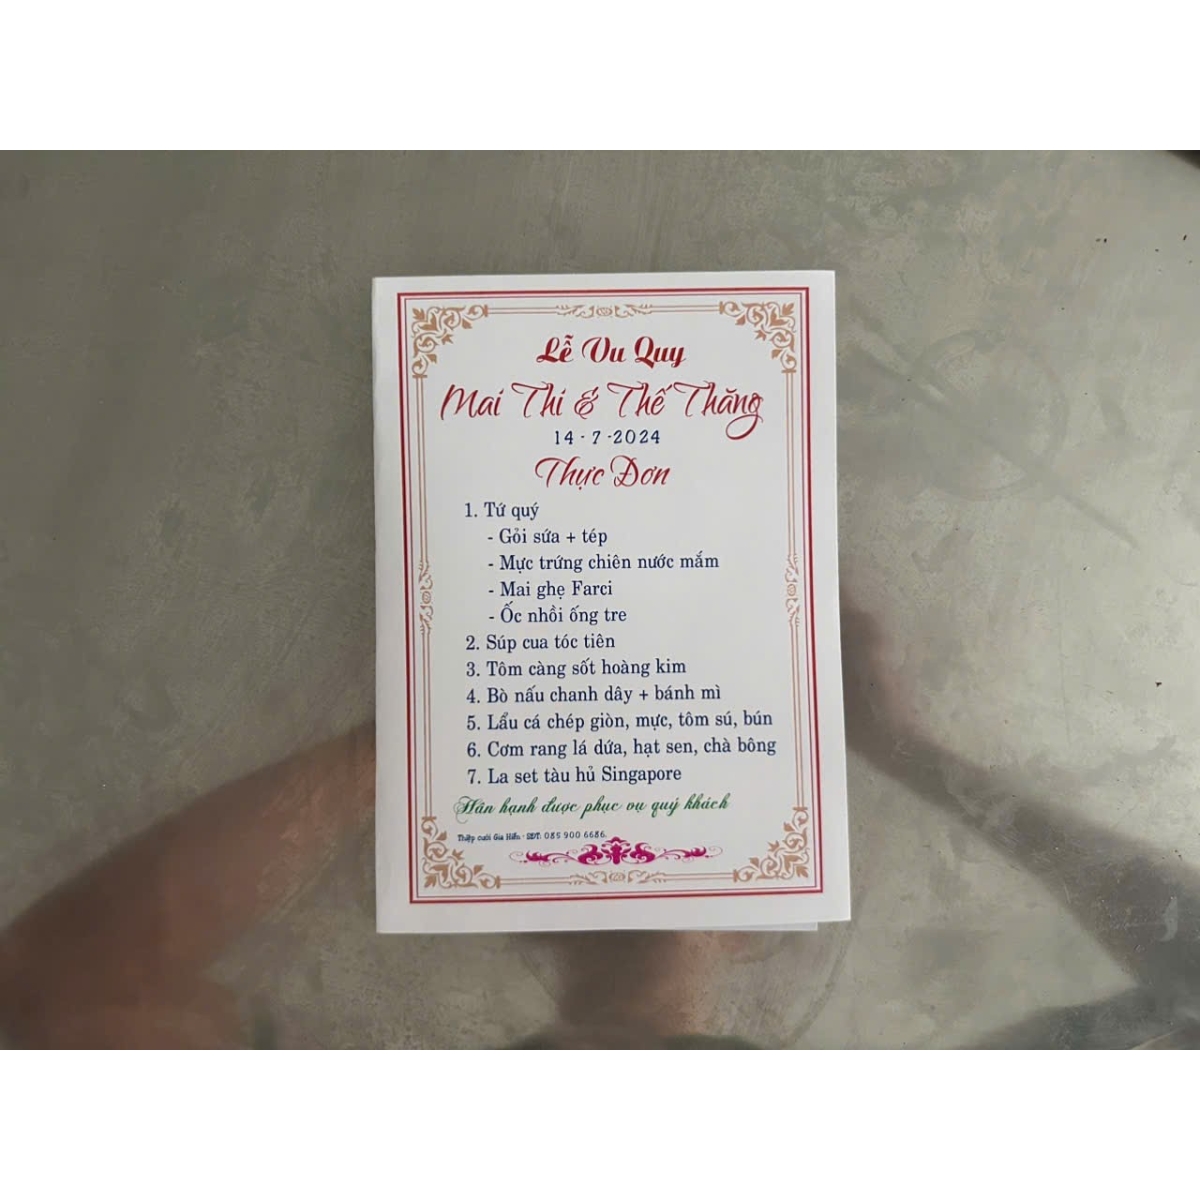 Lễ Vu Quy
Mai Thi & Thế Thăng
14 - 7 -2024
Thực Đơn
1. Tứ quý
- Gỏi sứa + tép
- Mực trứng chiên nước mắm
- Mai ghẹ Farci
- Ốc nhồi ống tre
2. Súp cua tóc tiên
3. Tôm càng sốt hoàng kim
4. Bò nấu chanh dây + bánh mì
5. Lẩu cá chép giòn, mực, tôm sú, bún
6. Cơm rang lá dứa, hạt sen, chà bông
7. La set tàu hủ Singapore
Hân hạnh được phục vụ quý khách
Thiệp cưới Gia Hiển - SĐT: 085 900 6686.